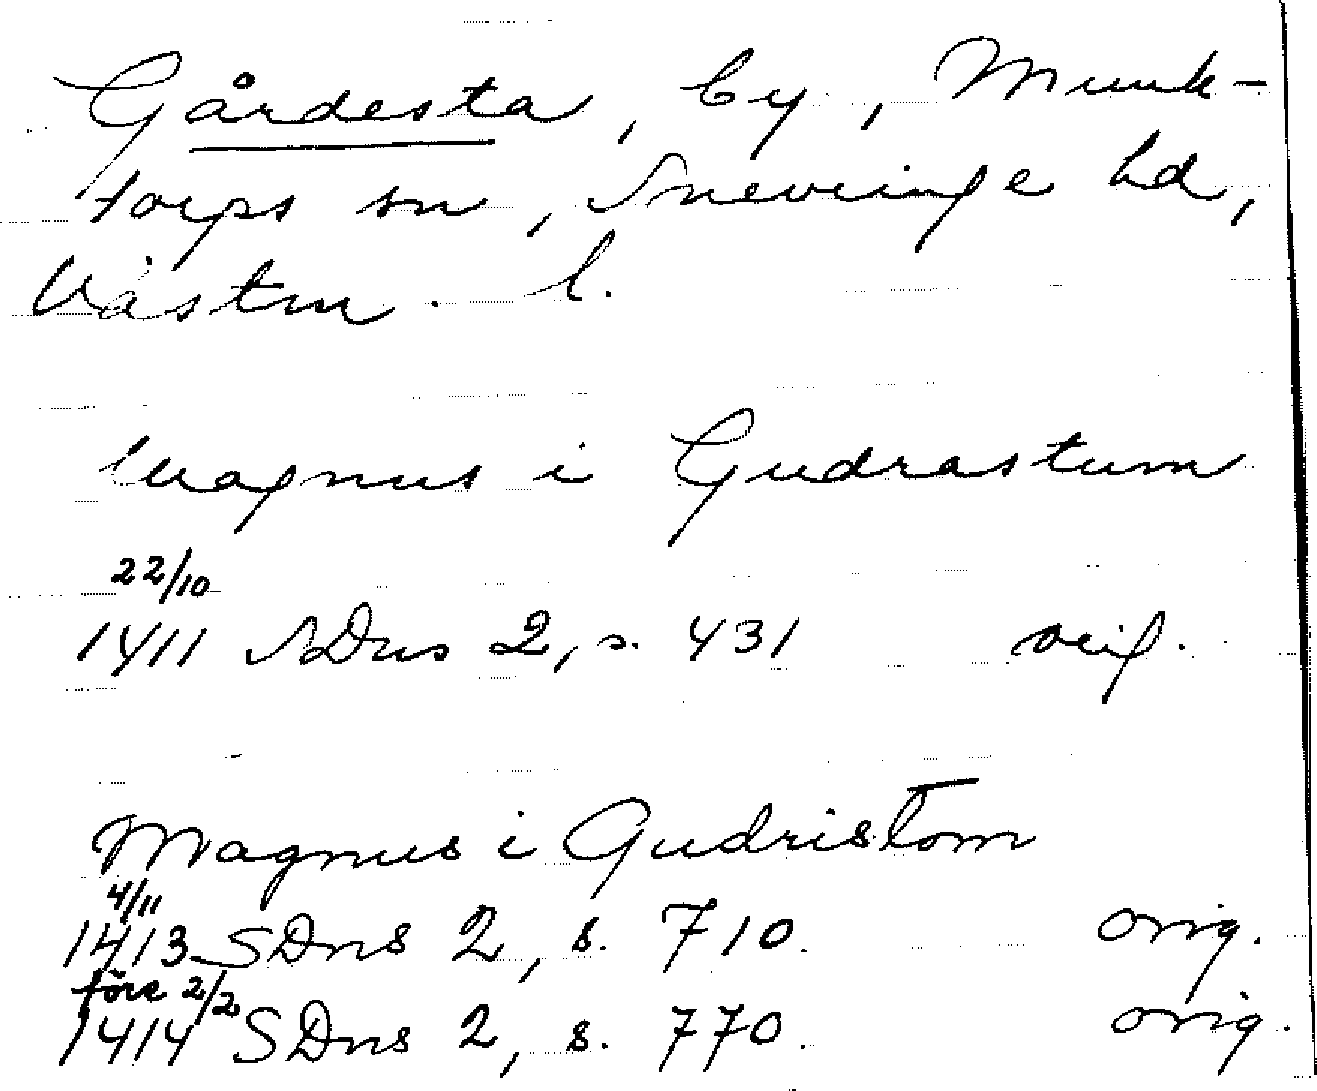 Gårdesta, by, Munk-
torps sn, Snevringe hd,
Västm. l.
Magnus i Gudrastum
22/10
1411 SDns 2, s. 431 orig.
Magnus i Gudristom
4/11
1413 SDns 2, s. 710. orig.
före 2/2
1414 SDns 2, s. 770. orig.